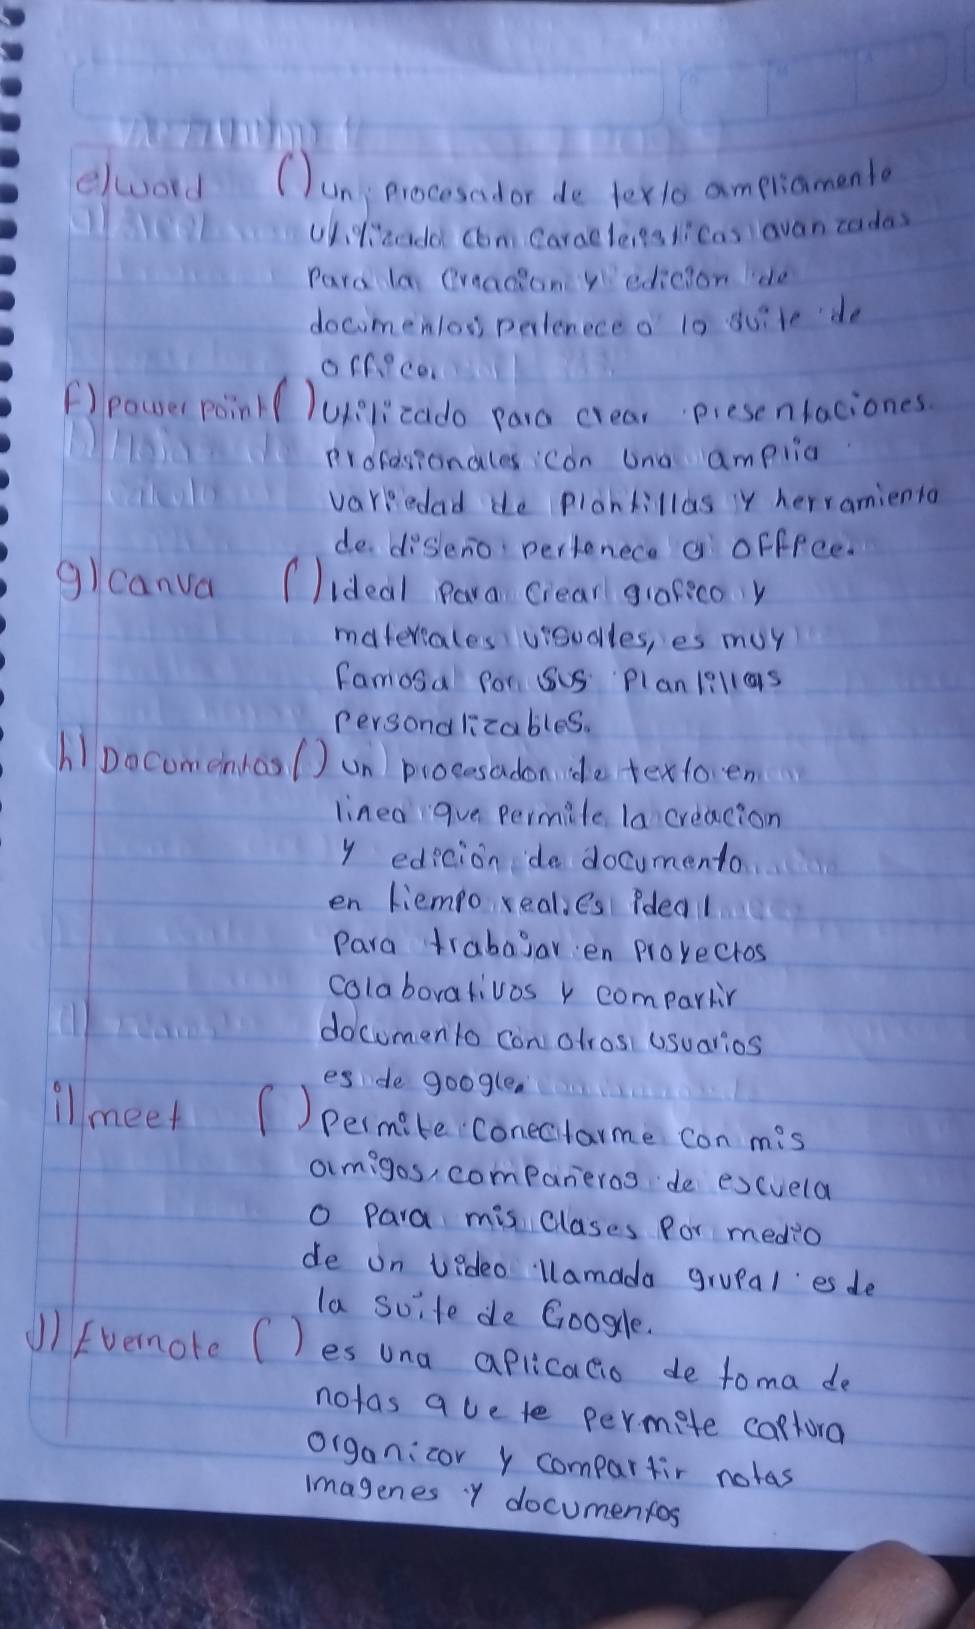 e) word ( ) un procesador de texto ampliamente
utilizado con caracteristicas avanzadas
Para la creacion y edicion de
documentos, pertenece a la suite de
office.
f) power point ( ) utilizado para crear presentaciones.
profesionales con una amplia
variedad de plantillas y herramienta
de diseño pertenece a office.
g) canva ( ) ideal para crear grafico y
materiales visuales, es muy
famosa por sus plantillas
personalizables.
h) Documentos ( ) un procesador de texto en
linea que permite la creacion
y edición de documento
en tiempo real. es ideal
para trabajar en proyectos
colaborativos y compartir
documento con otros usuarios
es de google.
i) meet ( ) permite conectarme con mis
amigos, compañeros de escuela
o para mis clases por medio
de un video llamada grupal es de
la suite de Google.
J) Evernote ( ) es una aplicacio de toma de
notas que te permite captura
organizar y compartir notas
imagenes y documentos